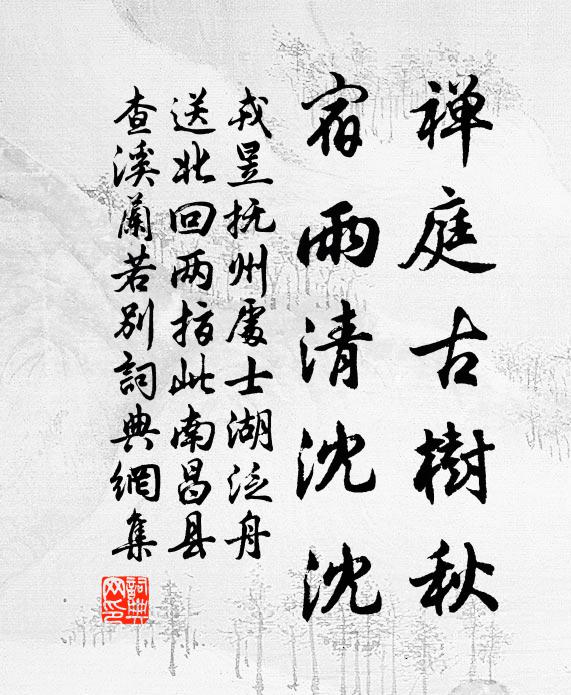 禅庭古樹秋
宿雨清沈沈
戎昱抚州處士湖泛舟
送北回两指此南昌县
查溪蘭若别詞典網集
詞典网印